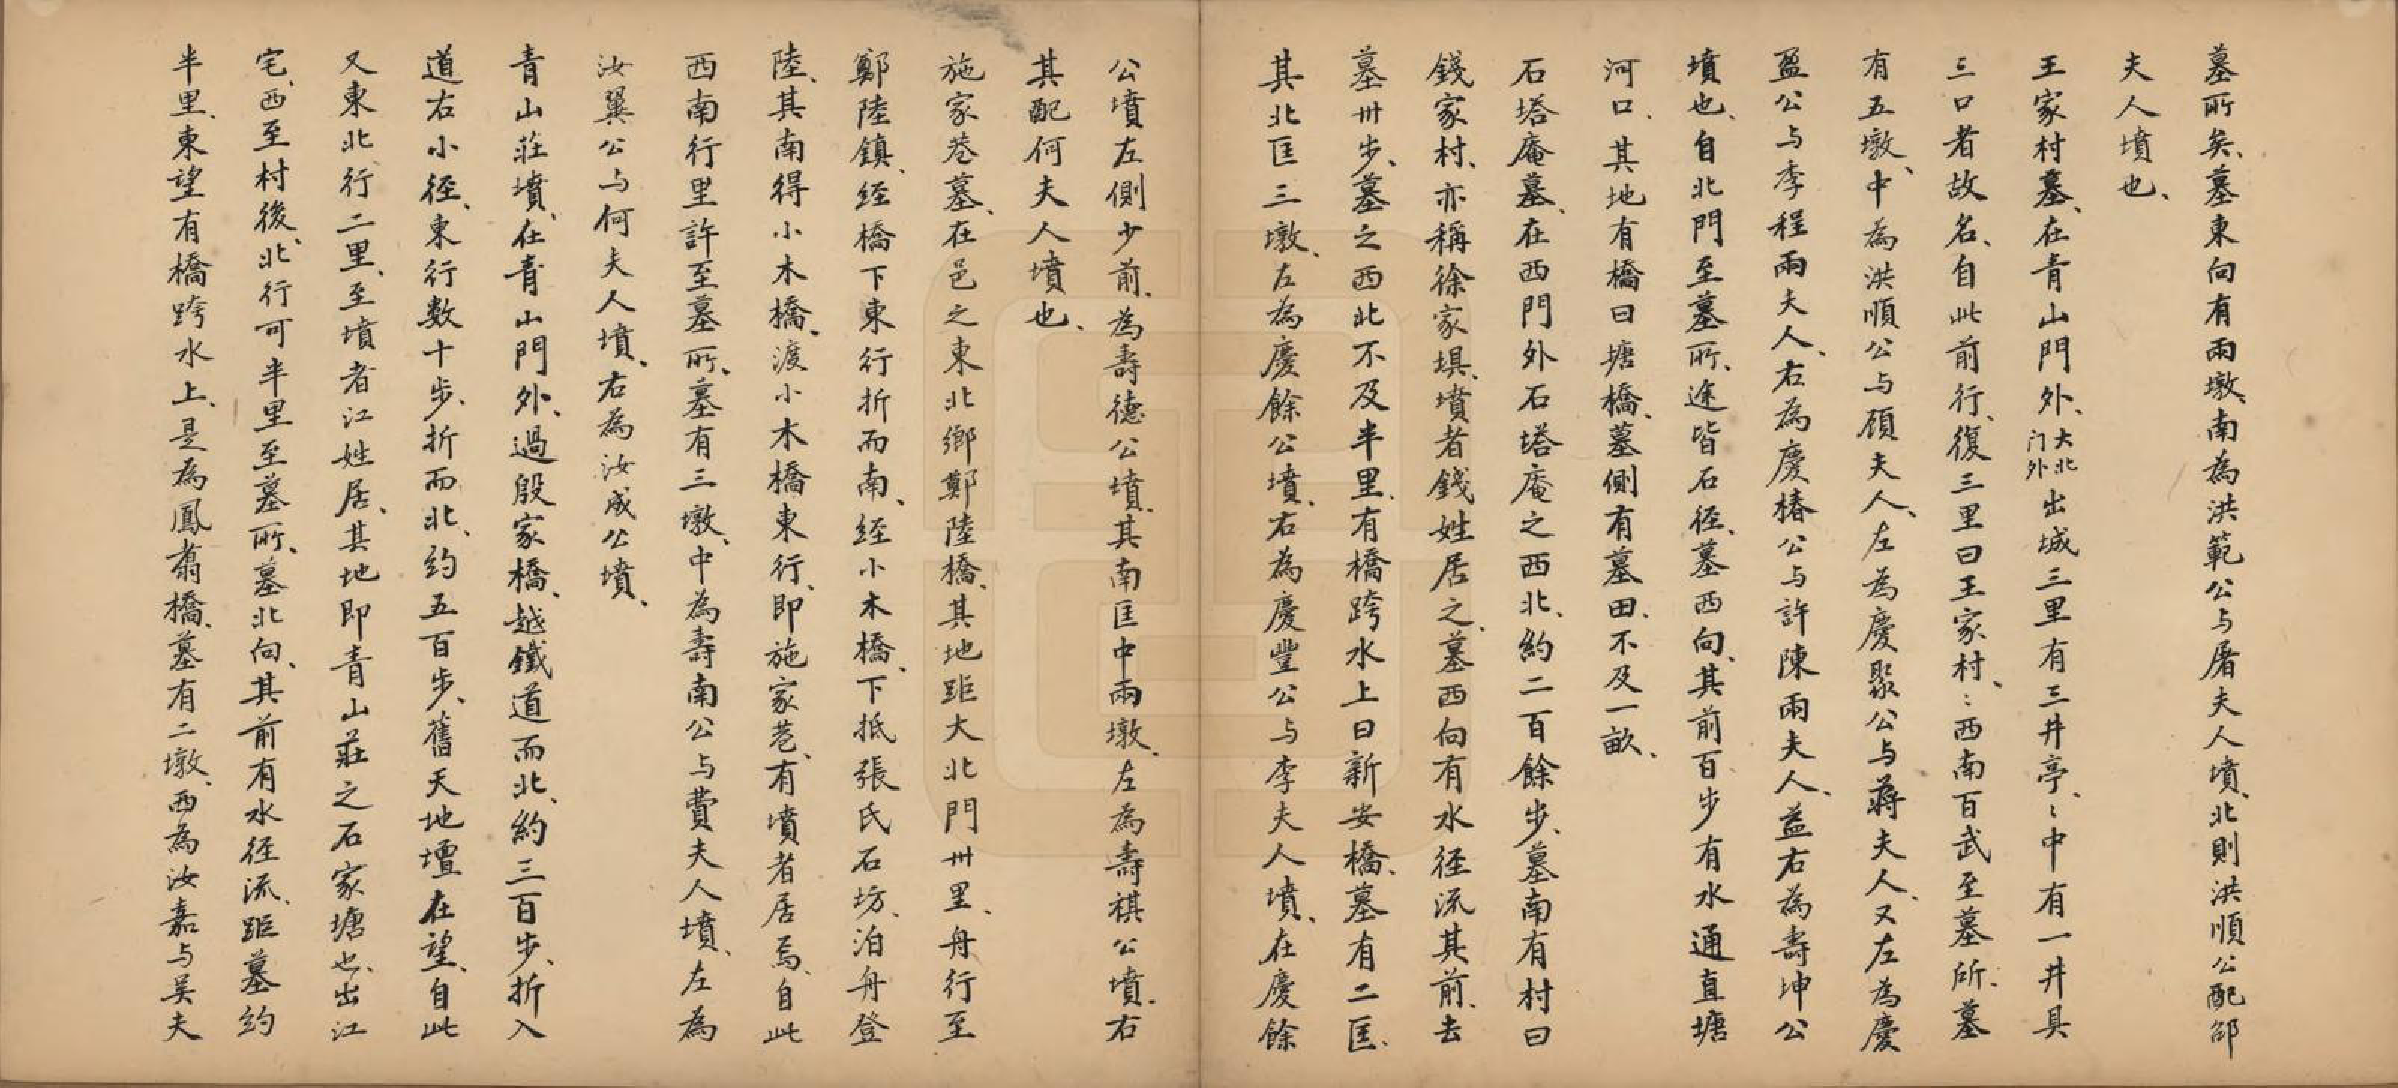 墓所矣、墓東向有兩墩、南為洪範公与屠夫人墳、北則洪順公配邵
夫人墳也、
王家村墓、在青山門外、大北门外出城三里有三井亭、〻中有一井具
三口者故名、自此前行、復三里曰王家村、〻西南百武至墓所、墓
有五墩、中為洪順公与顧夫人、左為慶聚公与蔣夫人、又左為慶
盈公与李程兩夫人、右為慶椿公与許陳兩夫人、益右為壽坤公
墳也、自北門至墓所、途皆石径、墓西向、其前百步有水通直塘
河口、其地有橋曰塘橋、墓側有墓田、不及一畝、
石塔庵墓、在西門外石塔庵之西北、約二百餘步、墓南有村曰
錢家村、亦稱徐家垻、墳者錢姓居之、墓西向有水径流其前、去
墓卅步、墓之西北不及半里、有橋跨水上曰新安橋、墓有二匡、
其北匡三墩、左為慶餘公墳、右為慶豐公与李夫人墳、在慶餘
公墳左側少前、為壽德公墳、其南匡中兩墩、左為壽祺公墳、右
其配何夫人墳也、
施家巷墓、在邑之東北鄉鄭陸橋、其地距大北門卅里、舟行至
鄭陸鎮、経橋下東行折而南、経小木橋、下抵張氏石坊、泊舟登
陸、其南得小木橋、渡小木橋東行、即施家巷、有墳者居焉、自此
西南行里許至墓所、墓有三墩、中為壽南公与費夫人墳、左為
汝翼公与何夫人墳、右為汝成公墳、
青山莊墳、在青山門外、過殷家橋、越鐵道而北、約三百步、折入
道右小径、東行数十步、折而北、約五百步、舊天地壇在望、自此
又東北行二里、至墳者江姓居、其地即青山莊之石家塘也、出江
宅、西至村後、北行可半里至墓所、墓北向、其前有水径流、距墓約
半里、東望有橋跨水上、是為鳳翥橋、墓有二墩、西為汝嘉与吴夫